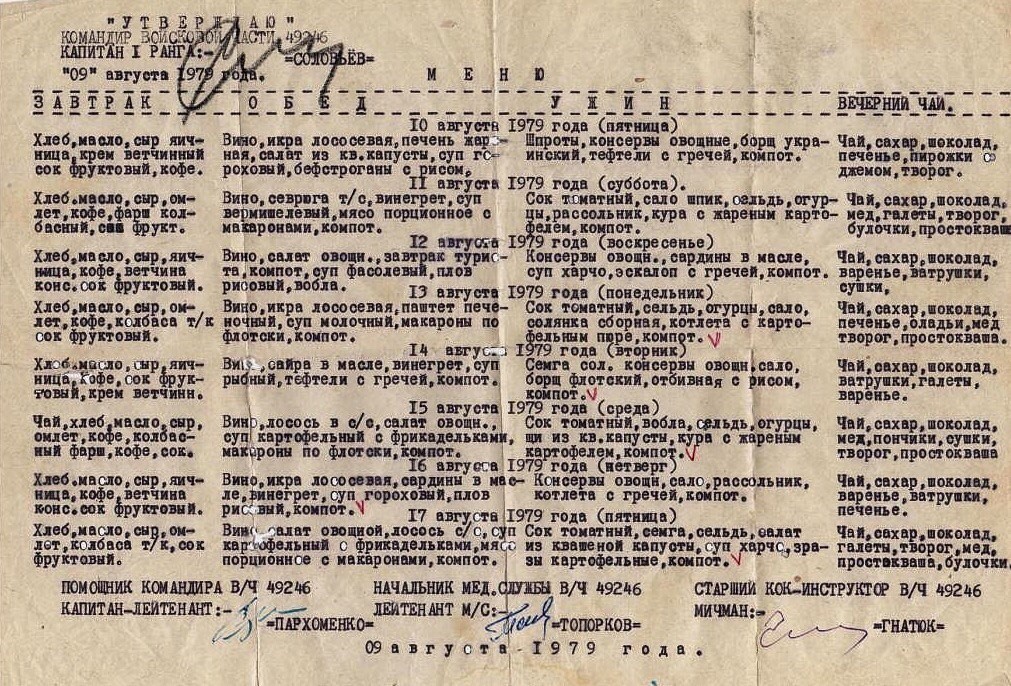 "УТВЕРЖДАЮ"
КОМАНДИР ВОЙСКОВОЙ ЧАСТИ 49246
КАПИТАН I РАНГА:-
=СОЛОВЬЁВ=
"09" августа 1979 года.
МЕНЮ
ЗАВТРАК ОБЕД УЖИН ВЕЧЕРНИЙ ЧАЙ.
10 августа 1979 года (пятница)
Хлеб,масло,сыр яич- Вино,икра лососевая,печень жаре- Шпроты,консервы овощные,борщ укра- Чай,сахар,шоколад,
ница,крем ветчинный ная,салат из кв.капусты,суп го- инский,тефтели с гречей,компот. печенье,пирожки с
сок фруктовый,кофе. роховый,бефстроганы с рисом. джемом,творог.
11 августа 1979 года (суббота).
Хлеб,масло,сыр,ом- Вино,севрюга т/с,винегрет,суп Сок томатный,сало шпик,сельдь,огур- Чай,сахар,шоколад,
лет,кофе,фарш кол- вермишелевый,мясо порционное с цы,рассольник,кура с жареным карто- мед,галеты,творог,
басный, фрукт. макаронами,компот. фелем,компот. булочки,простокваша
12 августа 1979 года (воскресенье)
Хлеб,масло,сыр,яич- Вино,салат овощн.,завтрак турис- Консервы овощн.,сардины в масле, Чай,сахар,шоколад,
ница,кофе,ветчина та,компот,суп фасолевый,плов суп харчо,эскалоп с гречей,компот. варенье,ватрушки,
конс.сок фруктовый. рисовый,вобла. сушки,
13 августа 1979 года (понедельник)
Хлеб,масло,сыр,ом- Вино,икра лососевая,паштет пече- Сок томатный,сельдь,огурцы,сало, Чай,сахар,шоколад,
лет,кофе,колбаса т/к ночный,суп молочный,макароны по солянка сборная,котлета с карто- печенье,оладьи,мед
сок фруктовый. флотски,компот. фельным пюре,компот. творог,простокваша.
14 августа 1979 года (вторник)
Хлеб,масло,сыр,яич- Вино,сайра в масле,винегрет,суп Семга сол. консервы овощн,сало, Чай,сахар,шоколад,
ница,кофе,сок фрук- рыбный,тефтели с гречей,компот. борщ флотский,отбивная с рисом, ватрушки,галеты,
товый,крем ветчинн. компот. варенье.
15 августа 1979 года (среда)
Чай,хлеб,масло,сыр, Вино,лосось в с/с,салат овощн., Сок томатный,вобла,сельдь,огурцы, Чай,сахар,шоколад,
омлет,кофе,колбас- суп картофельный с фрикадельками, щи из кв.капусты,кура с жареным мед,пончики,сушки,
ный фарш,кофе,сок. макароны по флотски,компот. картофелем,компот. творог,простокваша
16 августа 1979 года (четверг)
Хлеб,масло,сыр,яич- Вино,икра лососевая,сардины в мас- Консервы овощн,сало,рассольник, Чай,сахар,шоколад,
ница,кофе,ветчина ле,винегрет,суп гороховый,плов котлета с гречей,компот. варенье,ватрушки,
конс.сок фруктовый. рисовый,компот. печенье.
17 августа 1979 года (пятница)
Хлеб,масло,сыр,ом- Вино,салат овощной,лосось с/с,суп Сок томатный,семга,сельдь,салат Чай,сахар,шоколад,
лет,колбаса т/к,сок картофельный с фрикадельками,мясо из квашеной капусты,суп харчо,зра- галеты,творог,мед,
фруктовый. порционное с макаронами,компот. зы картофельные,компот. простокваша,булочки,
ПОМОШНИК КОМАНДИРА В/Ч 49246 НАЧАЛЬНИК МЕД.СЛУЖБЫ В/Ч 49246 СТАРШИЙ КОК-ИНСТРУКТОР В/Ч 49246
КАПИТАН-ЛЕЙТЕНАНТ:- ЛЕЙТЕНАНТ М/С:- МИЧМАН:-
=ПАРХОМЕНКО= =ТОПОРКОВ= =ГНАТЮК=
09 августа 1979 года.